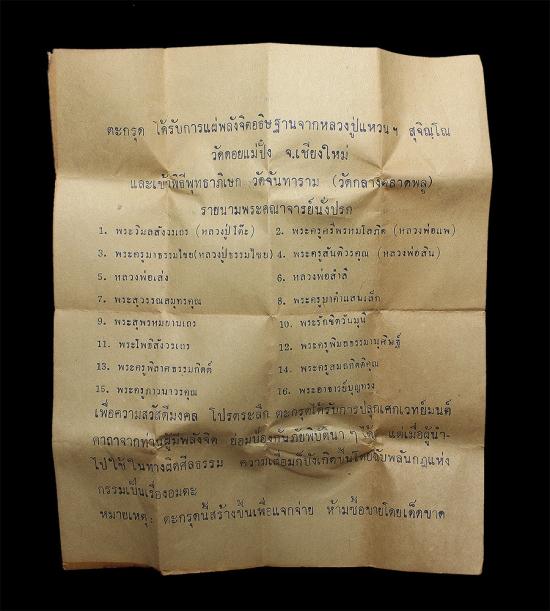 ตะกรุด ได้รับการแผ่พลังจิตอธิษฐานจากหลวงปู่แหวน ฯ สุจิณโณ
วัดดอยแม่ปั๋ง จ.เชียงใหม่
และเข้าพิธีพุทธาภิเษก วัดจันทาราม (วัดกลางตลาดพลู)
รายนามพระคณาจารย์นั่งปรก
1. พระวิมลสังวรเถร (หลวงปู่โต๊ะ) 2. พระครูศรีพรหมโสภิต (หลวงพ่อแพ)
3. พระครูบาธรรมไชย(หลวงปู่ธรรมไชย) 4. พระครูสันติวรคุณ (หลวงพ่อสิน)
5. หลวงพ่อเส่ง 6. หลวงพ่อสำลี
7. พระสุวรรณสมุทรคุณ 8. พระครูบาคำแสนเล็ก
9. พระสุพรหมยานเถร 10. พระรักขิตวันมุนี
11. พระโพธิสังวรเถร 12. พระครูพิมลธรรมานุศิษฐ์
13. พระครูพิลาศธรรมกิตติ์ 14. พระครูสมถกิตติคุณ
15. พระครูภาวนาวรคุณ 16. พระอาจารย์บุญทรง
เพื่อความสวัสดีมงคล โปรดระลึก ตะกรุดได้รับการปลุกเศกเวทย์มนต์
คาถาจากท่านผู้มีพลังจิต ย่อมป้องกันภัยพิบัตินา ๆ ได้ แต่เมื่อผู้นำ-
ไปใช้ในทางผิดศีลธรรม ความเสื่อมก็บังเกิดขึ้นโดยฉับพลันกฎแห่ง
กรรมเป็นเรื่องอมตะ
หมายเหตุ: ตะกรุดนี้สร้างขึ้นเพื่อแจกจ่าย ห้ามซื้อขายโดยเด็ดขาด